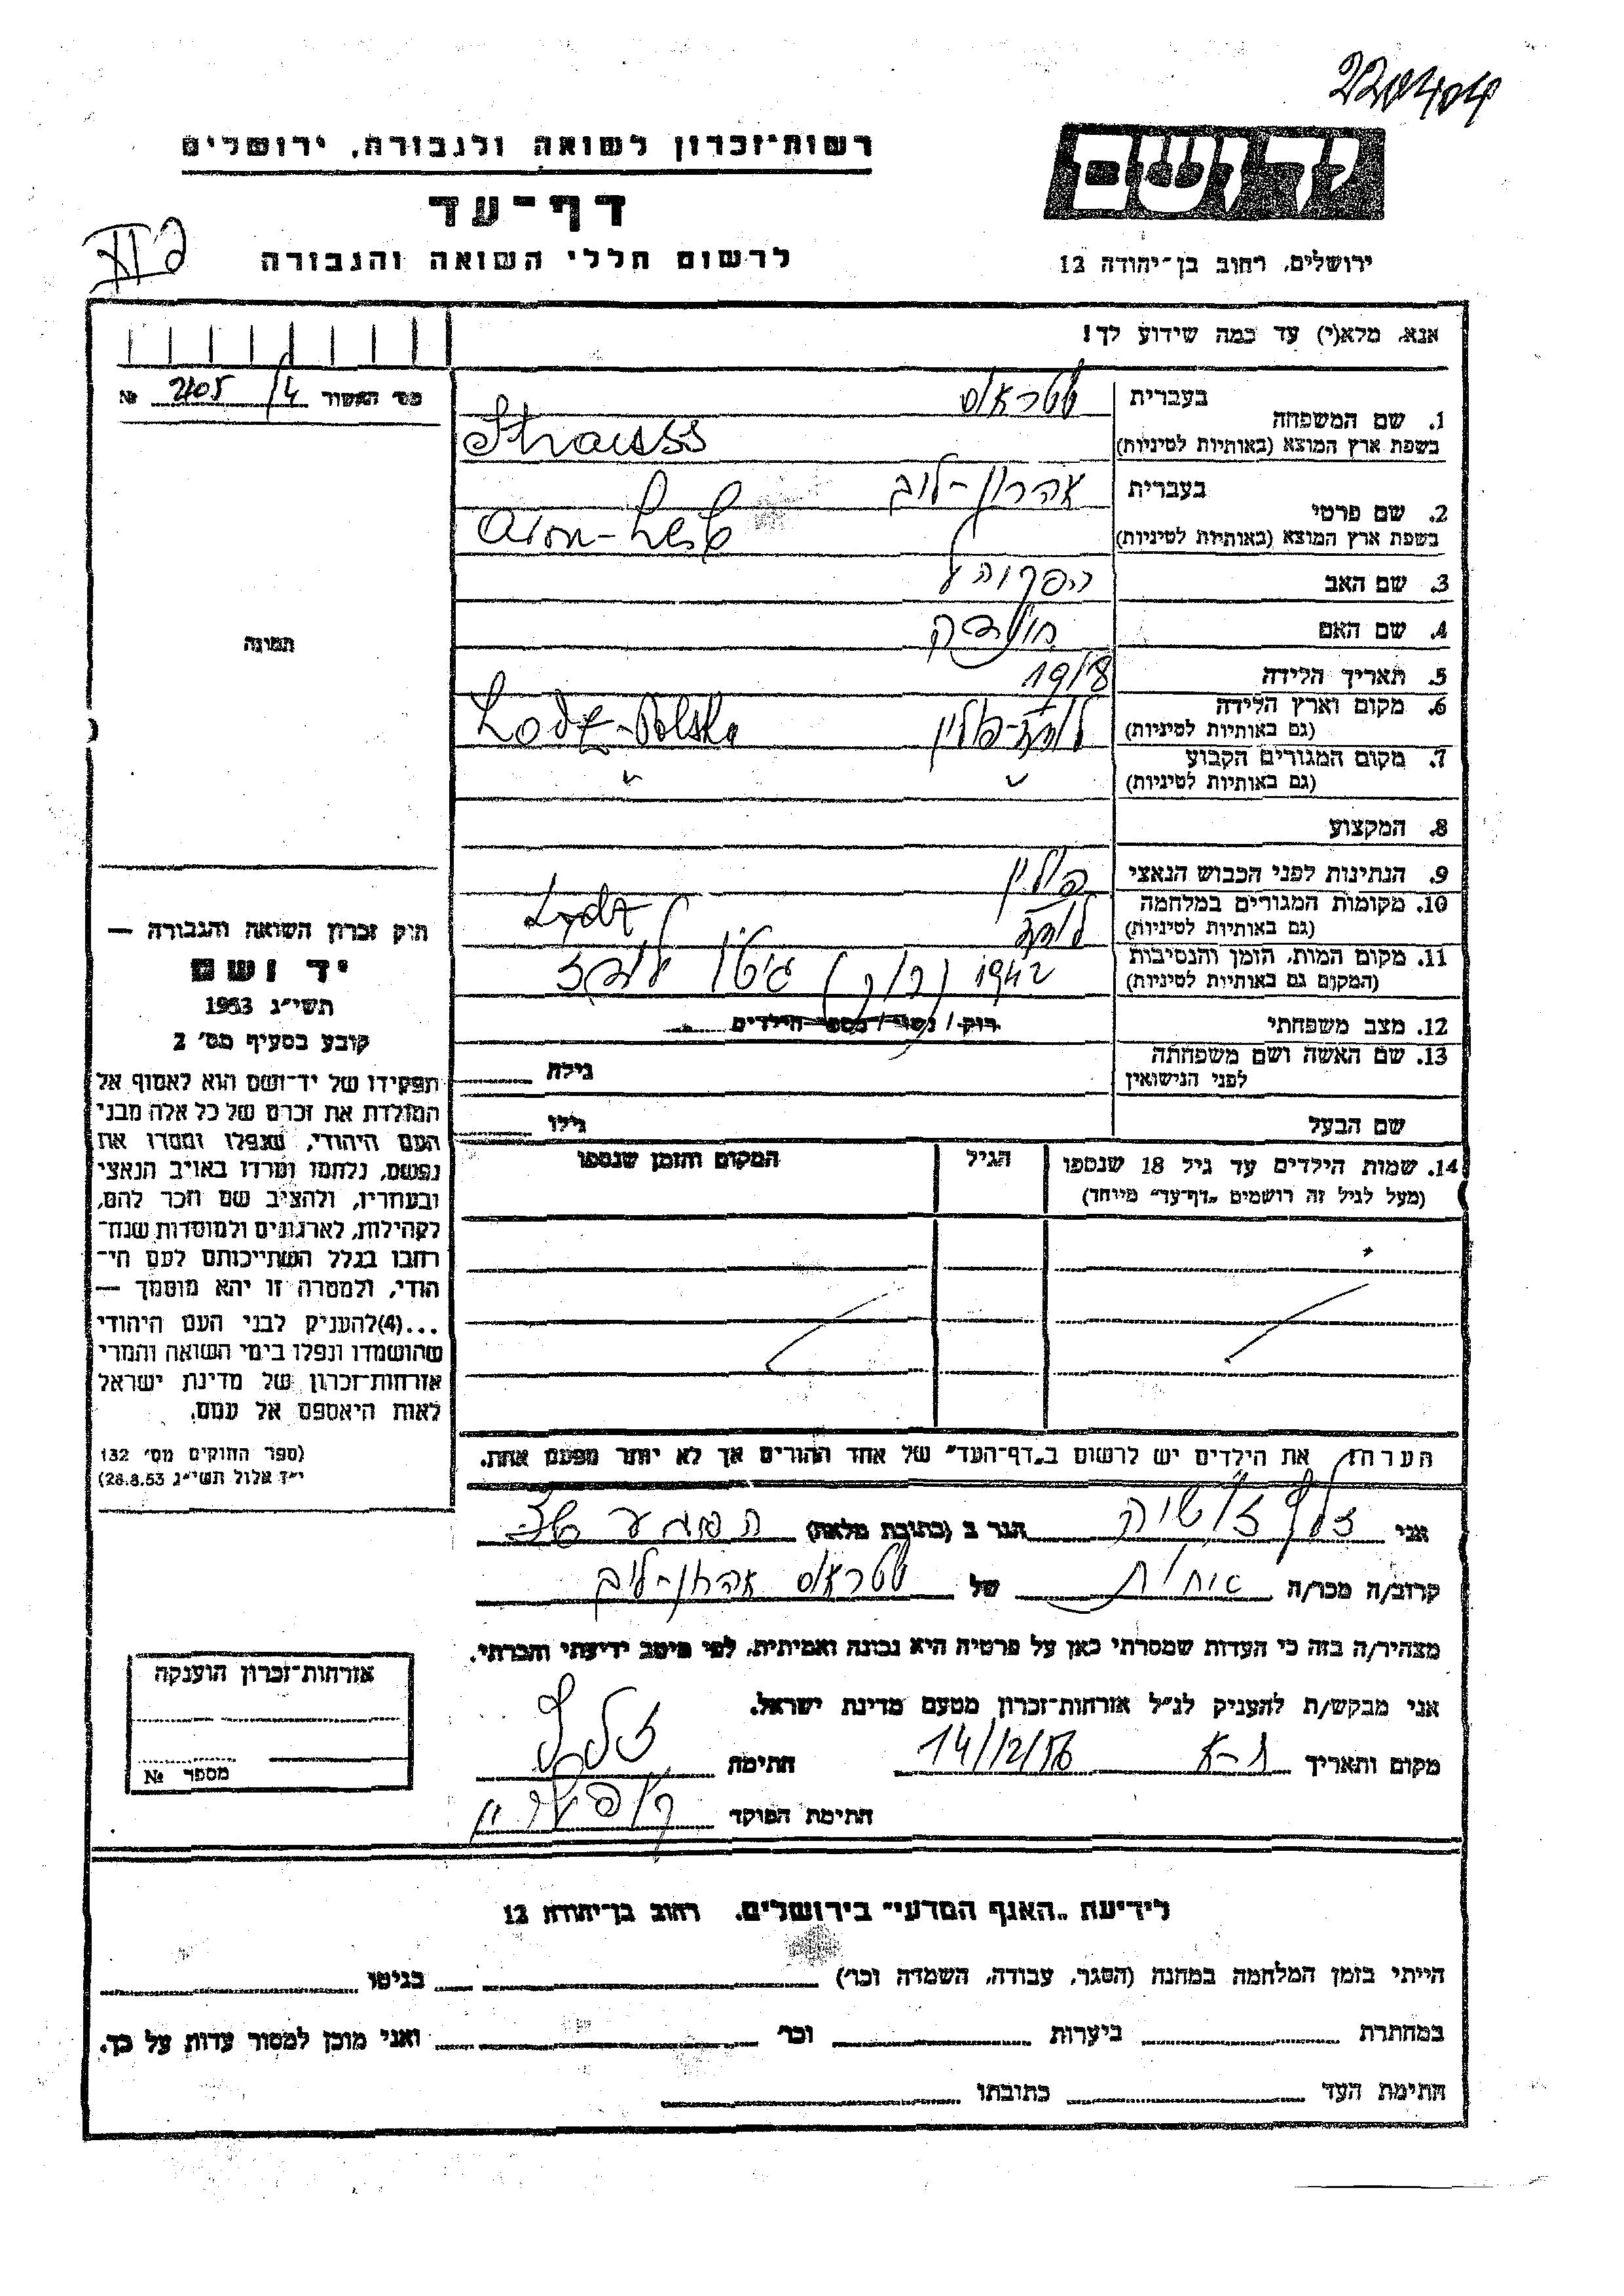 220404
רשות־זכרון לשואה ולגבורה, ירושלים
דף־עד
לרשום חללי השואה והגבורה
יד ושם
ירושלים, רחוב בן־יהודה 12
אנא, מלא(י) עד כמה שידוע לך!
מס' האשור 4/ 2405 №
תמונה
1. שם המשפחה
בעברית שטראוס
בשפת ארץ המוצא (באותיות לטיניות) Strauss
2. שם פרטי
בעברית אהרון-לוב
בשפת ארץ המוצא (באותיות לטיניות) Aron-
3. שם האב
4. שם האם
5. תאריך הלידה
6. מקום וארץ הלידה לודז-פולין Lodz-Polska
(גם באותיות לטיניות)
7. מקום המגורים הקבוע " "
(גם באותיות לטיניות)
8. המקצוע
9. הנתינות לפני הכבוש הנאצי פולין
10. מקומות המגורים במלחמה לודז Lodz
(גם באותיות לטיניות)
11. מקום המות, הזמן והנסיבות 1942 גיטו לודז
(המקום גם באותיות לטיניות)
12. מצב משפחתי רוק / נשוי / מספר הילדים
13. שם האשה ושם משפחתה גילה
לפני הנישואין
שם הבעל גילו
14. שמות הילדים עד גיל 18 שנספו הגיל המקום והזמן שנספו
(מעל לגיל זה רושמים „דף־עד" מיוחד)
הערה: את הילדים יש לרשום ב„דף־העד" של אחד ההורים אך לא יותר מפעם אחת.
חוק זכרון השואה והגבורה —
יד ושם
תשי"ג 1953
קובע בסעיף מס' 2
תפקידו של יד־ושם הוא לאסוף אל
המולדת את זכרם של כל אלה מבני
העם היהודי, שנפלו ומסרו את
נפשם, נלחמו ומרדו באויב הנאצי
ובעוזריו, ולהציב שם וזכר להם,
לקהילות, לארגונים ולמוסדות שנח־
רבו בגלל השתייכותם לעם הי־
הודי, ולמטרה זו יהא מוסמך —
...(4)להעניק לבני העם היהודי
שהושמדו ונפלו בימי השואה והמרי
אזרחות־זכרון של מדינת ישראל
לאות היאספם אל עמם.
(ספר החוקים מס' 132
י"ד אלול תשי"ג 28.8.53)
אני הגר ב (כתובת מלאה)
קרוב/ה מכר/ה אחות של שטראוס אהרון-לוב
מצהיר/ה בזה כי העדות שמסרתי כאן על פרטיה היא נכונה ואמיתית, לפי מיטב ידיעתי והכרתי.
אני מבקש/ת להעניק לנ"ל אזרחות־זכרון מטעם מדינת ישראל.
מקום ותאריך ת-א 14/12/56 חתימה
חתימת הפוקד
אזרחות־זכרון הוענקה
מספר №
לידיעת „האגף המדעי" בירושלים, רחוב בן־יהודה 12
הייתי בזמן המלחמה במחנה (הסגר, עבודה, השמדה וכו') בגיטו
במחתרת ביערות וכו' ואני מוכן למסור עדות על כך.
חתימת העד כתובתו